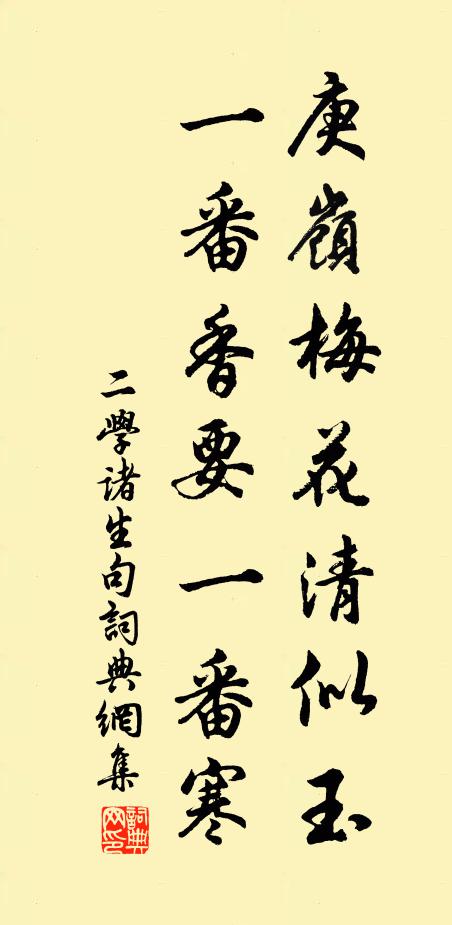 庾嶺梅花清似玉
一番香要一番寒
二學諸生句詞典網集
詞典
网印